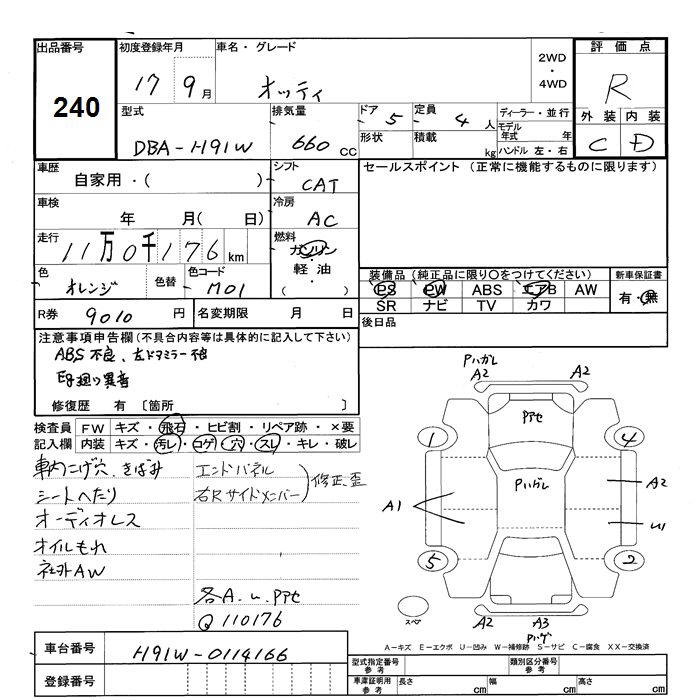 出品番号
240
初度登録年月
17 9月
車名・グレード
オッティ
2WD
・
4WD
評価点
R
外装 内装
C D
型式
DBA-H91W
排気量
660 cc
ドア 5
形状
定員 4 人
積載 kg
ディーラー・並行
モデル年式 年
ハンドル 左・右
車歴
自家用・( )
シフト
CAT
セールスポイント (正常に機能するものに限ります)
車検
年 月( 日)
冷房
AC
走行
11万0千176km
燃料
ガソリン
・
軽油
( )
色
オレンジ
色替
色コード
M01
装備品(純正品に限り〇をつけてください)
PS PW ABS エアB AW
SR ナビ TV カワ
新車保証書
有・無
R券 9010 円
名変期限 月 日
後日品
注意事項申告欄(不具合内容等は具体的に記入して下さい)
ABS不良、左ドアミラー不良
Eg廻り異音
修復歴 有 〔箇所 〕
検査員 FW キズ・飛石・ヒビ割・リペア跡・×要
記入欄 内装 キズ・汚レ・コゲ・穴・スレ・キレ・破レ
車内こげ穴、きばみ
シートへたり
オーディオレス
オイルもれ
社外AW
エンドパネル
右Rサイドメンバー
修正、歪
各A.u.Pアセ
Q110176
Pハガレ
A2
A2
Pアセ
1
4
Pハガレ
A1
A2
U1
5
2
スペア
A2
A3
Pハゲ
A-キズ E-エクボ U-凹み W-補修跡 S-サビ C-腐食 XX-交換済
車台番号
H91W-0114166
登録番号
型式指定番号
参考
類別区分番号
参考
車庫証明用
参考
長さ cm
幅 cm
高さ cm